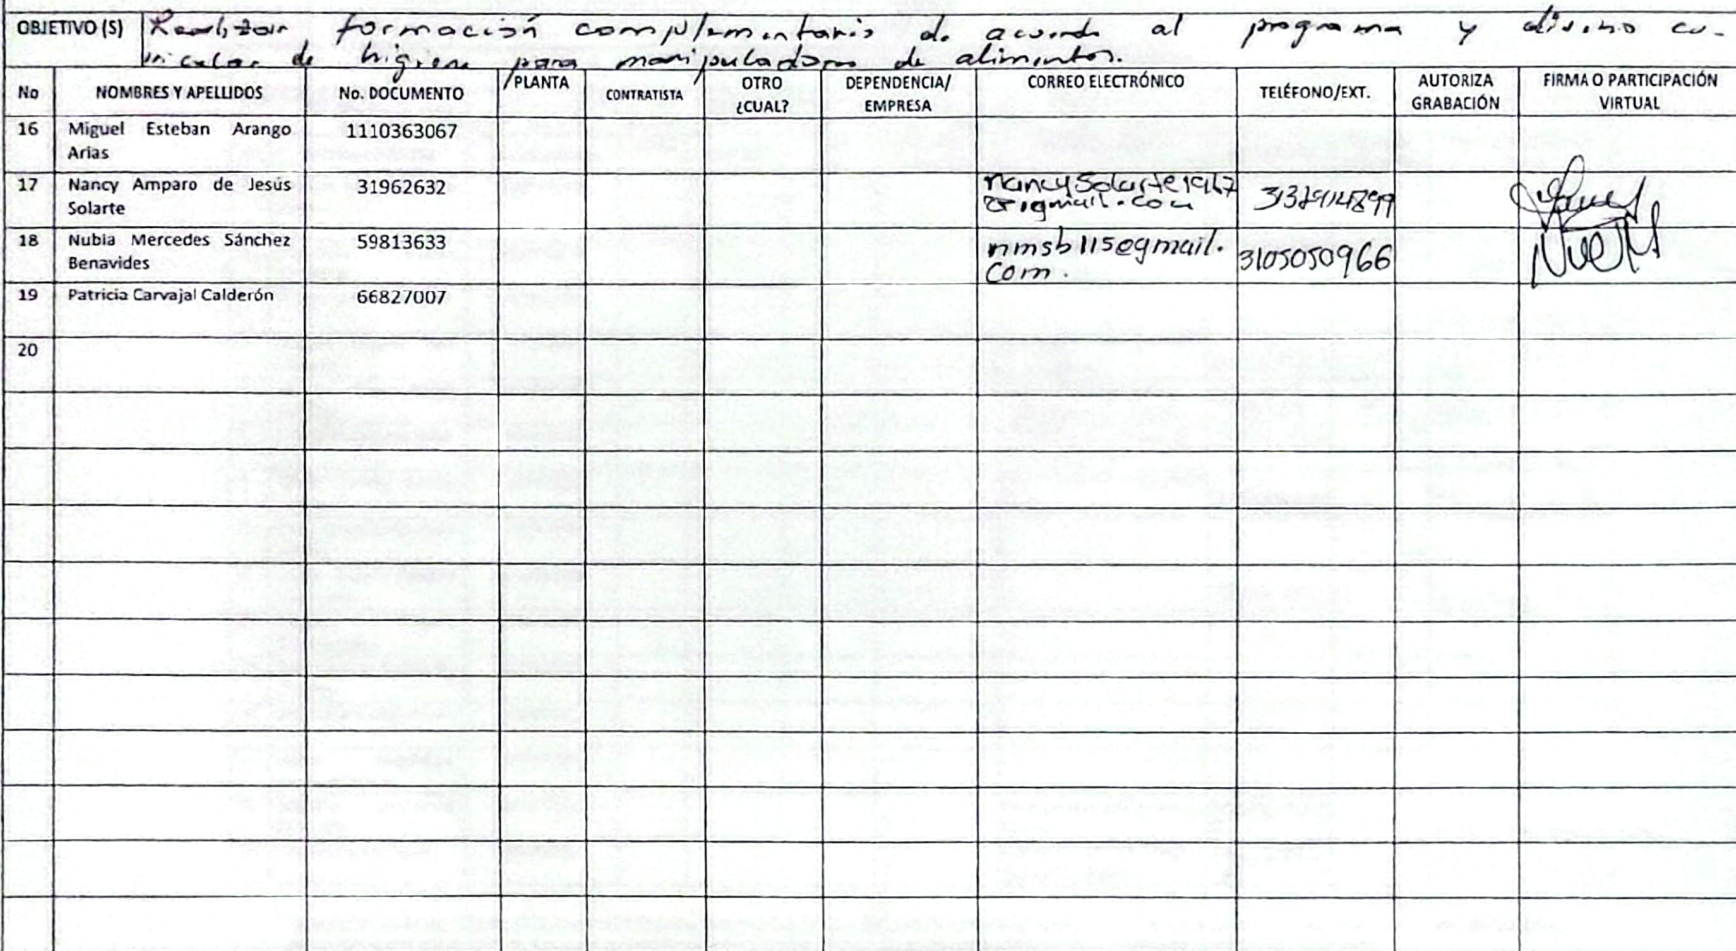 OBJETIVO (S) Realizar formación complementaria de acuerdo al programa y diseño cu-
rricular de higiene para manipuladores de alimentos.
No NOMBRES Y APELLIDOS No. DOCUMENTO PLANTA CONTRATISTA OTRO ¿CUAL? DEPENDENCIA/ EMPRESA CORREO ELECTRÓNICO TELÉFONO/EXT. AUTORIZA GRABACIÓN FIRMA O PARTICIPACIÓN VIRTUAL
16 Miguel Esteban Arango 1110363067
Arias
17 Nancy Amparo de Jesús 31962632
Solarte
@gmail.com
18 Nubia Mercedes Sánchez 59813633 nmsb115@gmail. 3105050966
Benavides com.
19 Patricia Carvajal Calderón 66827007
20